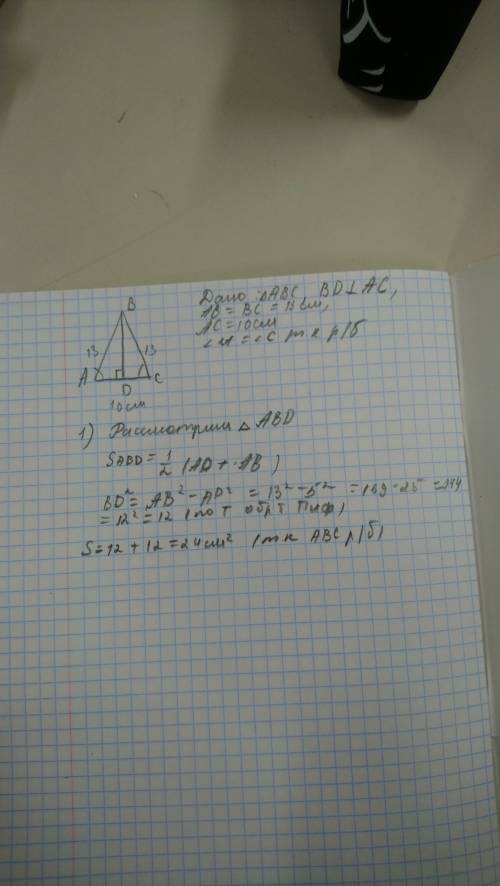 B
13 13
A D C
10 см
Дано: △ABC BD⊥AC,
AB = BC = 13 см,
AC = 10 см
∠A = ∠C т к р/б
1) Рассмотрим △ ABD
SABD = 1/2 (AD + AB)
BD² = AB² - AD² = 13² - 5² = 169 - 25 = 144
= 12² = 12 (по т обр т Пиф)
S = 12 + 12 = 24 см² (т к ABC р/б)